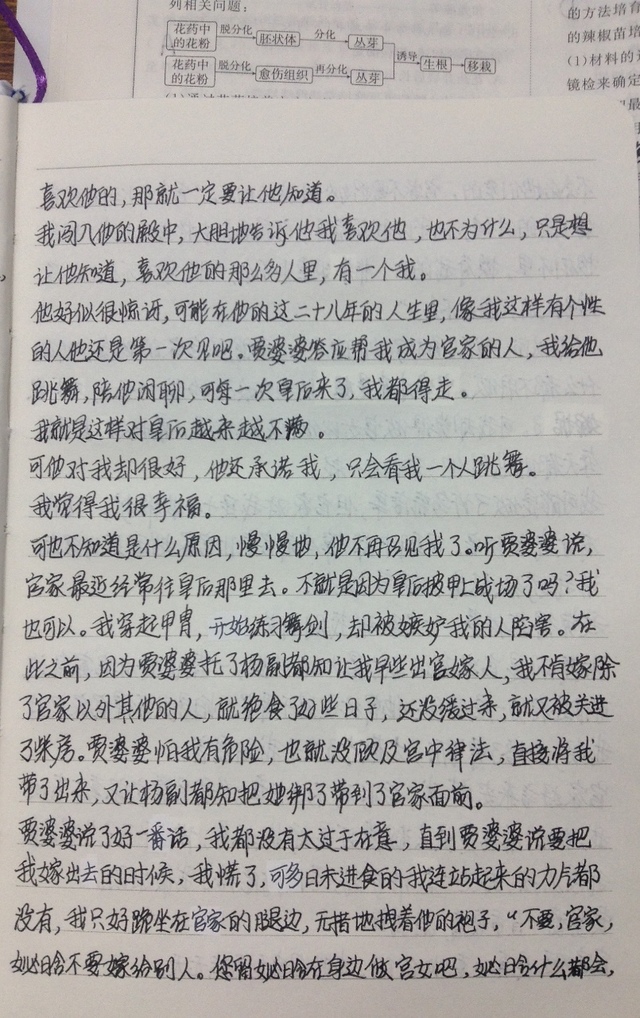 列相关问题：
花药中的花粉 脱分化 胚状体 分化 丛芽 诱导 生根 移栽
花药中的花粉 脱分化 愈伤组织 再分化 丛芽
的方法培育
的辣椒苗培
(1)材料的选
镜检来确定
喜欢他的，那就一定要让他知道。
我闯入他的殿中，大胆地告诉他我喜欢他，也不为什么，只是想
让他知道，喜欢他的那么多人里，有一个我。
他好似很惊讶，可能在他的这二十八年的人生里，像我这样有个性
的人他还是第一次见吧。贾婆婆答应帮我成为官家的人，我给他
跳舞，陪他闲聊，可每一次皇后来了，我都得走。
我就是这样对皇后越来越不满。
可他对我却很好，他还承诺我，只会看我一个人跳舞。
我觉得我很幸福。
可也不知道是什么原因，慢慢地，他不再召见我了。听贾婆婆说，
官家最近经常往皇后那里去。不就是因为皇后披甲上战场了吗？我
也可以。我穿起甲胄，开始练习舞剑，却被嫉妒我的人陷害。在
此之前，因为贾婆婆托了杨副都知让我早些出宫嫁人，我不肯嫁除
了官家以外其他的人，就绝食了好些日子，还没缓过来，就又被关进
了柴房。贾婆婆怕我有危险，也就没顾及宫中律法，直接将我
带了出来，又让杨副都知把她绑了带到了官家面前。
贾婆婆说了好一番话，我都没有太过于在意，直到贾婆婆说要把
我嫁出去的时候，我慌了，可多日未进食的我连站起来的力气都
没有，我只好跪坐在官家的腿边，无措地拽着他的袍子，“不要，官家，
妼晗不要嫁给别人。您留妼晗在身边做宫女吧，妼晗什么都会，